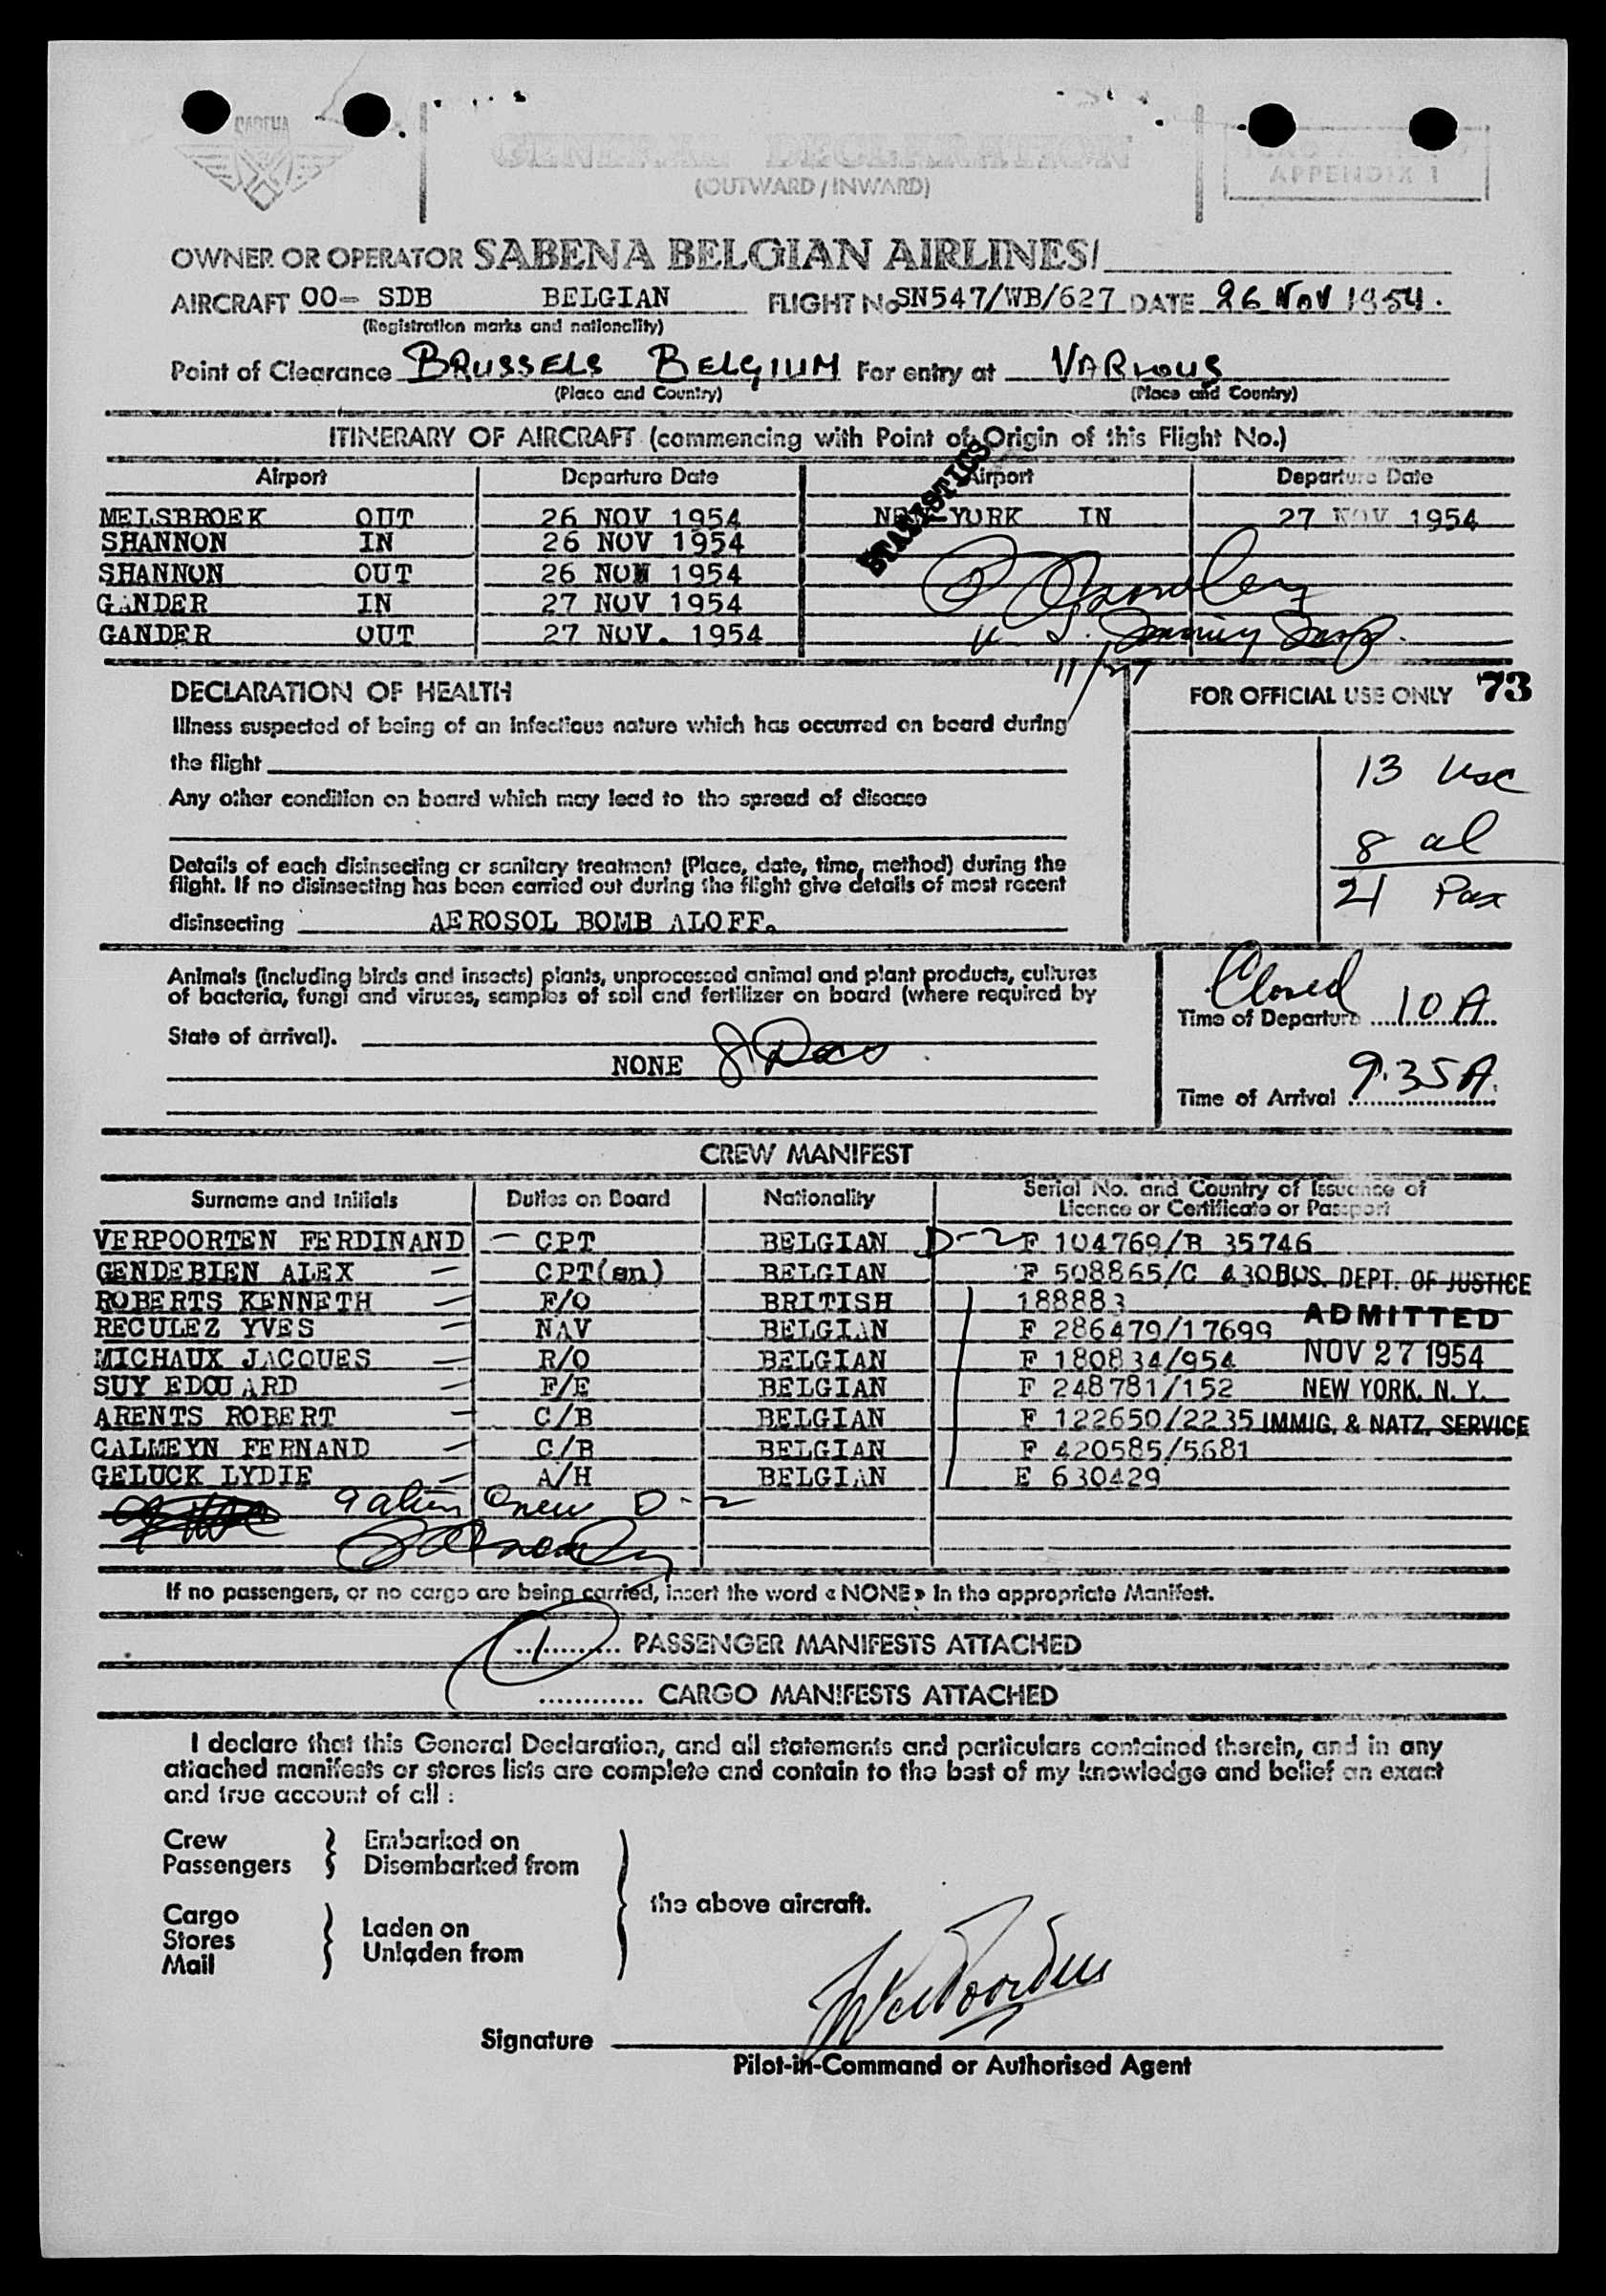 SABENA
GENERAL DECLARATION
(OUTWARD / INWARD)
APPENDIX 1
OWNER OR OPERATOR SABENA BELGIAN AIRLINES/
AIRCRAFT OO- SDB BELGIAN FLIGHT No SN547/WB/627 DATE 26 NOV 1954.
(Registration marks and nationality)
Point of Clearance BRUSSELS BELGIUM For entry at VARIOUS
(Place and Country) (Place and Country)
ITINERARY OF AIRCRAFT (commencing with Point of Origin of this Flight No.)
STATISTICS
Airport Departure Date Airport Departure Date
MELSBROEK OUT 26 NOV 1954 NEW YORK IN 27 NOV 1954
SHANNON IN 26 NOV 1954
SHANNON OUT 26 NOV 1954
GANDER IN 27 NOV 1954
GANDER OUT 27 NOV. 1954
11/27
DECLARATION OF HEALTH FOR OFFICIAL USE ONLY 73
Illness suspected of being of an infectious nature which has occurred on board during
the flight
13 usc
Any other condition on board which may lead to the spread of disease
8 al
21 Pax
Details of each disinsecting or sanitary treatment (Place, date, time, method) during the
flight. If no disinsecting has been carried out during the flight give details of most recent
disinsecting AEROSOL BOMB ALOFF.
Animals (including birds and insects) plants, unprocessed animal and plant products, cultures
of bacteria, fungi and viruses, samples of soil and fertilizer on board (where required by
State of arrival).
NONE
Closed
Time of Departure 10 A
Time of Arrival 9.35 A.
CREW MANIFEST
Surname and Initials Duties on Board Nationality Serial No. and Country of Issuance of
Licence or Certificate or Passport
VERPOORTEN FERDINAND - CPT BELGIAN D-2 F 104769/B 35746
GENDEBIEN ALEX - CPT(en) BELGIAN F 508865/C 430B U.S. DEPT. OF JUSTICE
ROBERTS KENNETH - F/O BRITISH 188883 ADMITTED
RECULEZ YVES - NAV BELGIAN F 286479/17699
MICHAUX JACQUES - R/O BELGIAN F 180834/954 NOV 27 1954
SUY EDOUARD - F/E BELGIAN F 248781/152 NEW YORK, N. Y.
ARENTS ROBERT - C/B BELGIAN F 122650/2235 IMMIG. & NATZ. SERVICE
CALMEYN FERNAND - C/B BELGIAN F 420585/5681
GELUCK LYDIE - A/H BELGIAN E 630429
9 alien crew D-2
If no passengers, or no cargo are being carried, insert the word « NONE » in the appropriate Manifest.
1 PASSENGER MANIFESTS ATTACHED
............ CARGO MANIFESTS ATTACHED
I declare that this General Declaration, and all statements and particulars contained therein, and in any
attached manifests or stores lists are complete and contain to the best of my knowledge and belief an exact
and true account of all :
Crew Embarked on
Passengers Disembarked from
the above aircraft.
Cargo
Stores Laden on
Mail Unladen from
Signature
Pilot-in-Command or Authorised Agent